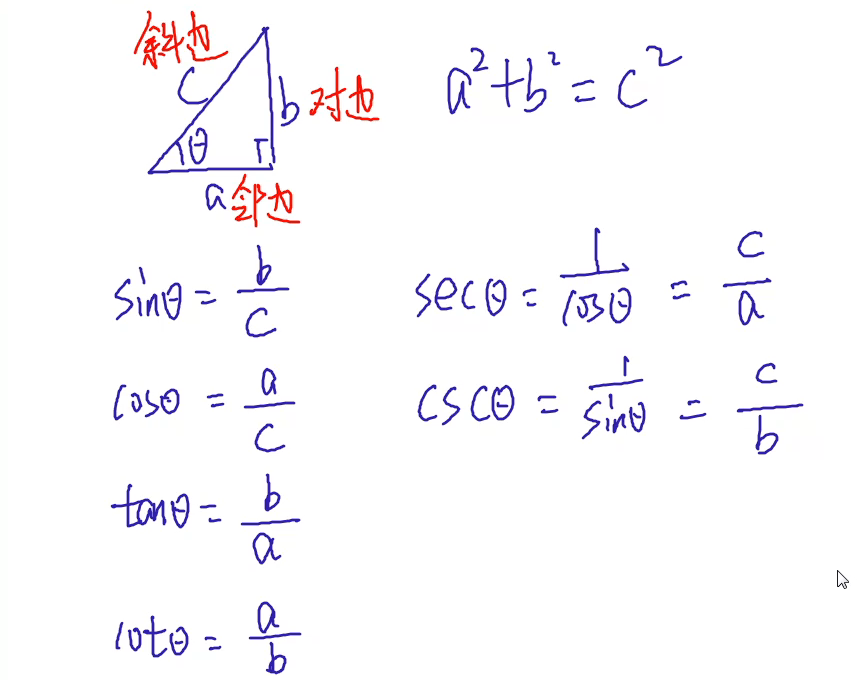 斜边
c
θ
b 对边
a 邻边
a²+b²=c²
sinθ = b/c
cosθ = a/c
tanθ = b/a
cotθ = a/b
secθ = 1/cosθ = c/a
cscθ = 1/sinθ = c/b